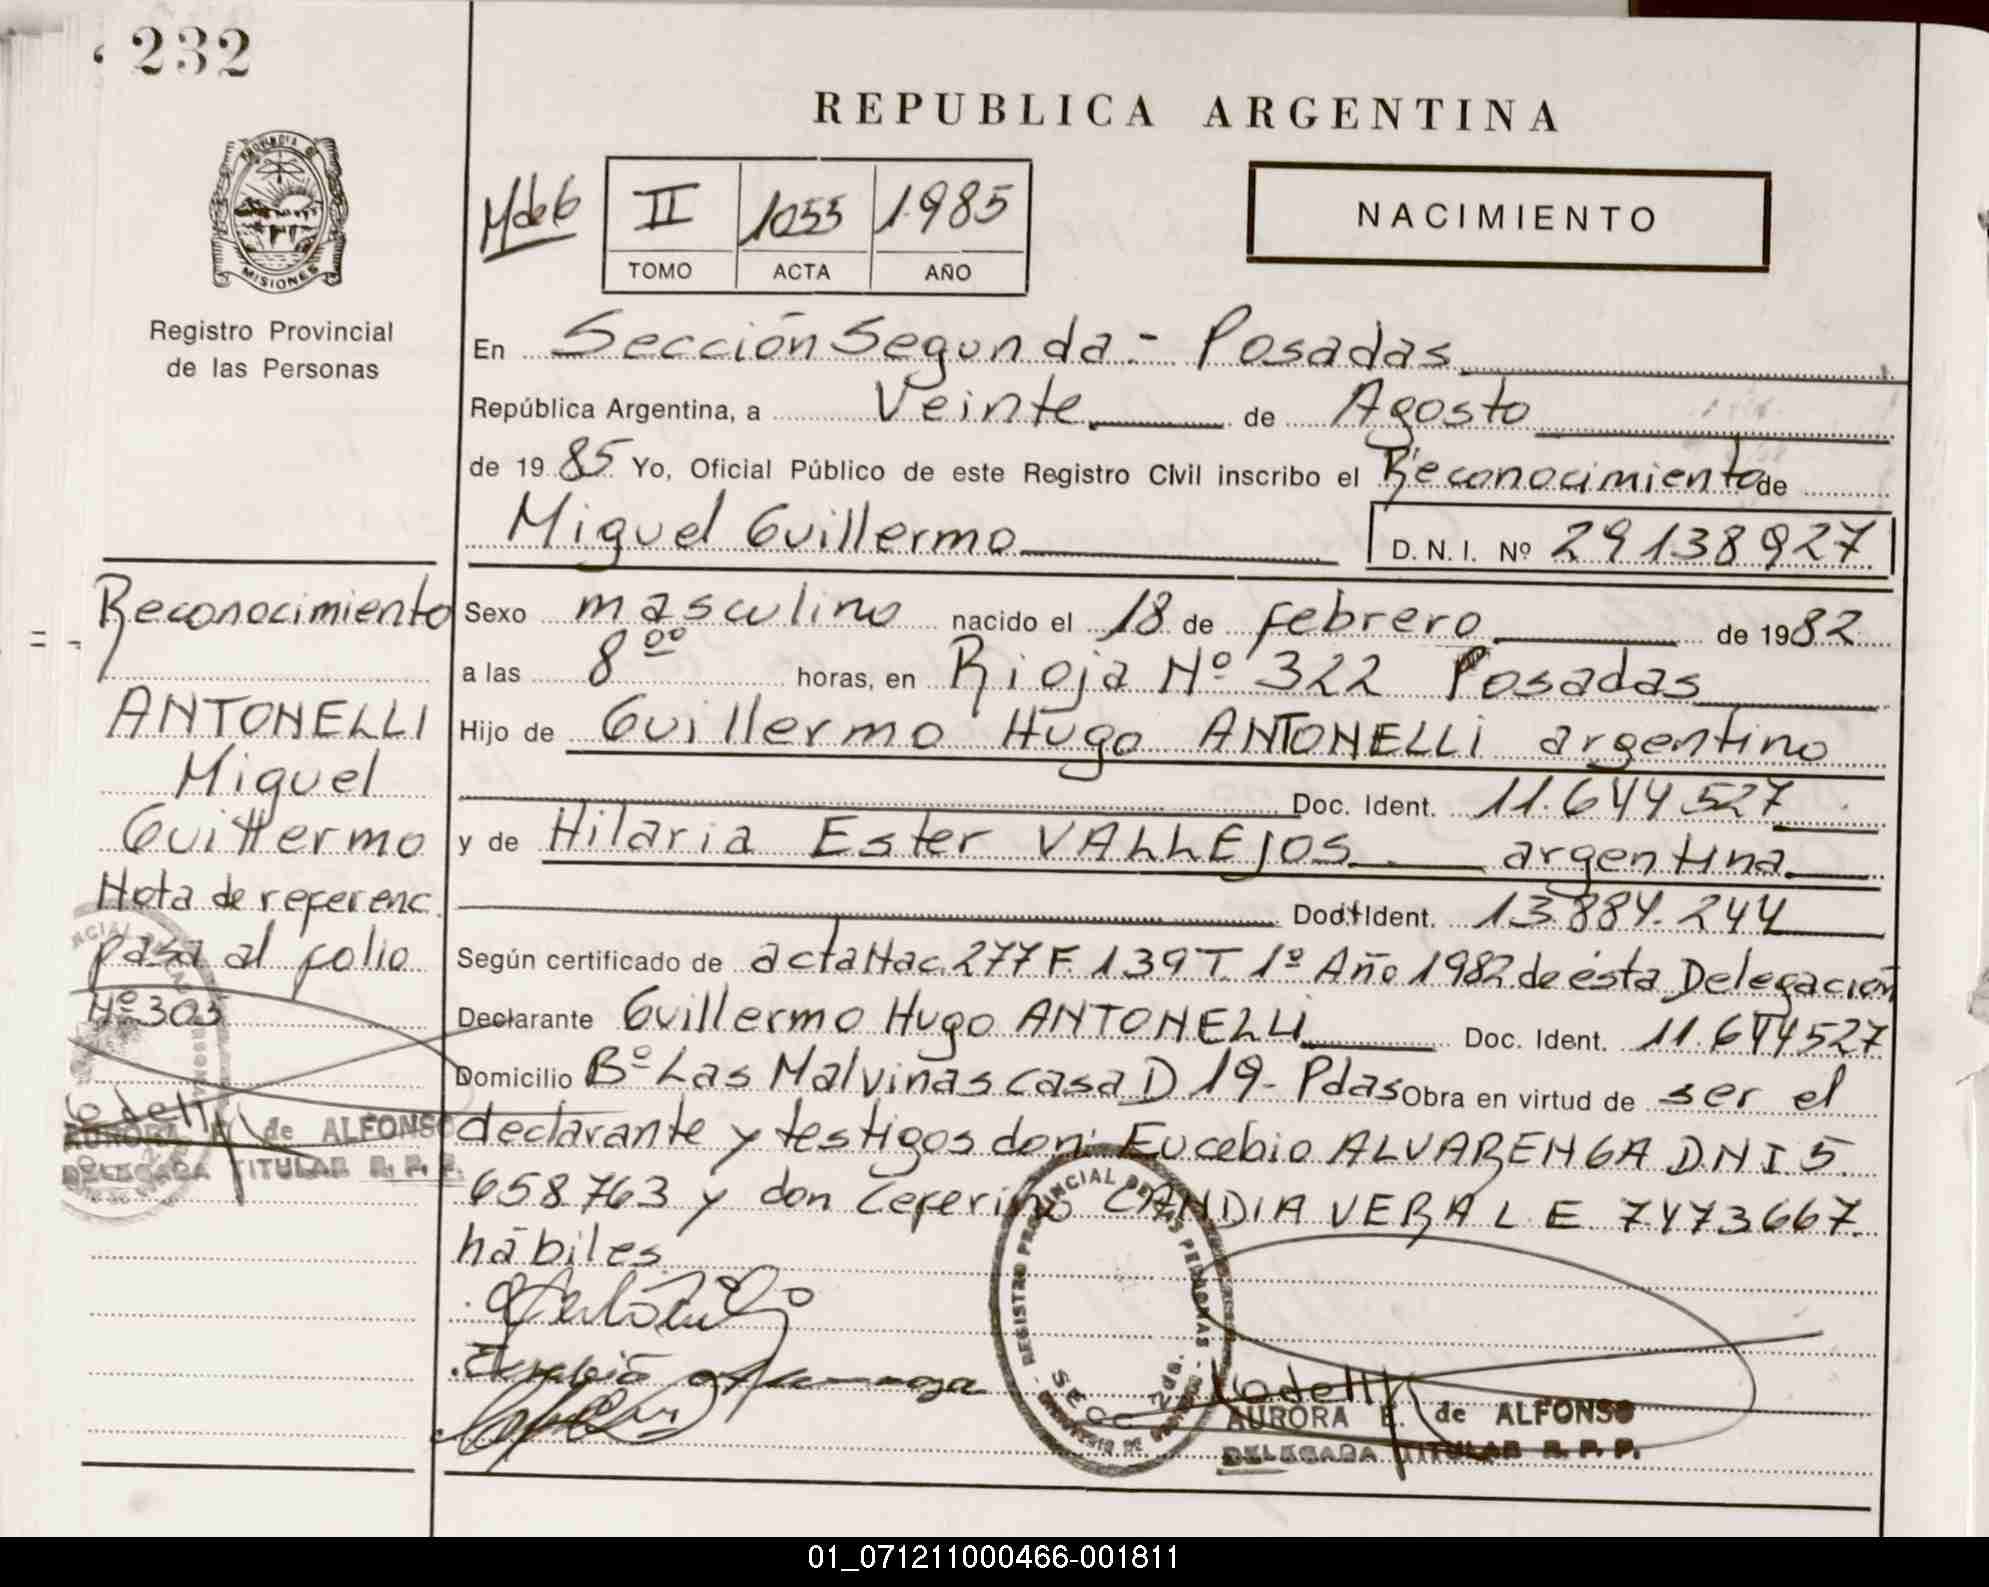 232
REPUBLICA ARGENTINA
PROVINCIA DE
MISIONES
Registro Provincial
de las Personas
II 1055 1985
TOMO ACTA AÑO
NACIMIENTO
En Sección Segunda - Posadas
República Argentina, a Veinte de Agosto
de 1985 Yo, Oficial Público de este Registro Civil inscribo el Reconocimiento de
Miguel Guillermo D.N.I. Nº 29138927
Sexo masculino nacido el 18 de febrero de 1982
a las 8⁰⁰ horas, en Rioja Nº 322 Posadas
Hijo de Guillermo Hugo ANTONELLI argentino
Doc. Ident. 11.644527
y de Hilaria Ester VALLEJOS argentina
Doc. Ident. 13.884.244
Según certificado de acta Nac. 277 F. 139 T 1º Año 1982 de ésta Delegación
Declarante Guillermo Hugo ANTONELLI Doc. Ident. 11.644527
Domicilio Bº Las Malvinas casa D 19- Pdas Obra en virtud de ser el
declarante y testigos don: Eucebio ALVARENGA D.N.I 5.
658.763 y don Ceferino CANDIA VERA L.E. 7473667.
hábiles
REGISTRO PROVINCIAL DE LAS PERSONAS
SECC 2da.
AURORA E. de ALFONSO
DELEGADA TITULAR R.P.P.
Reconocimiento
ANTONELLI
Miguel
Guillermo
Nota de referenc.
pasa al folio
Nº 303
AURORA E. de ALFONSO
DELEGADA TITULAR R.P.P.
01_071211000466-001811